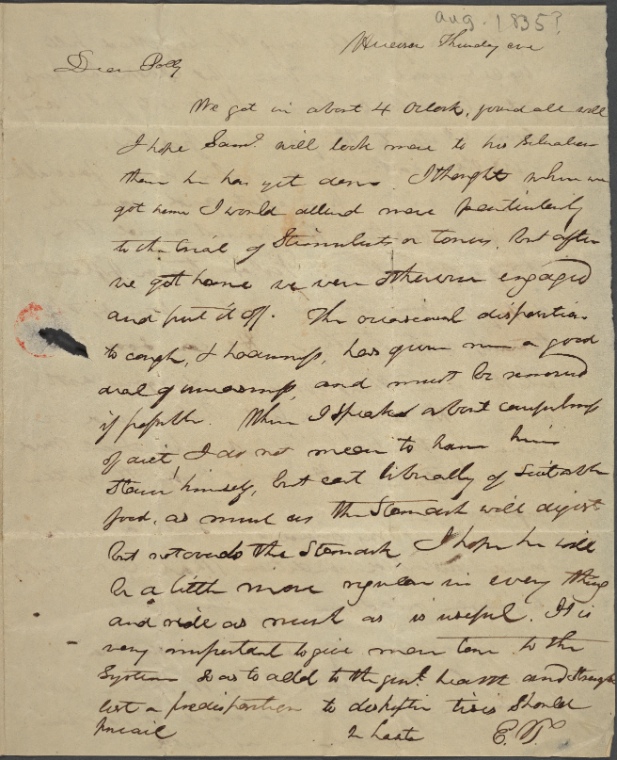 Aug. 1835?
Thursday eve
Dear Polly
We got in about 4 Oclock, found all well
I hope Saml. will look more to his
than he has yet done. I thought when we
got home I would attend more particularly
to the trial of Stimulents or tonics, but after
we got home we were otherwise engaged
and put it off. The occasional disposition
to cough, & hoarsness, has given me a good
deal of uneasiness, and must be removed
if possible. When I speake about carefulness
of diet, I do not mean to have him
starve himself, but eat liberally of suitable
food, as much as the Stomach will digest
but not overdo the Stomach, I hope he will
be a little more regular in every thing
and ride as much as is useful. It is
very important to give more tone to the
System so as to add to the genl. health and strength
lest a predisposition to should
prevail
In haste E. T.